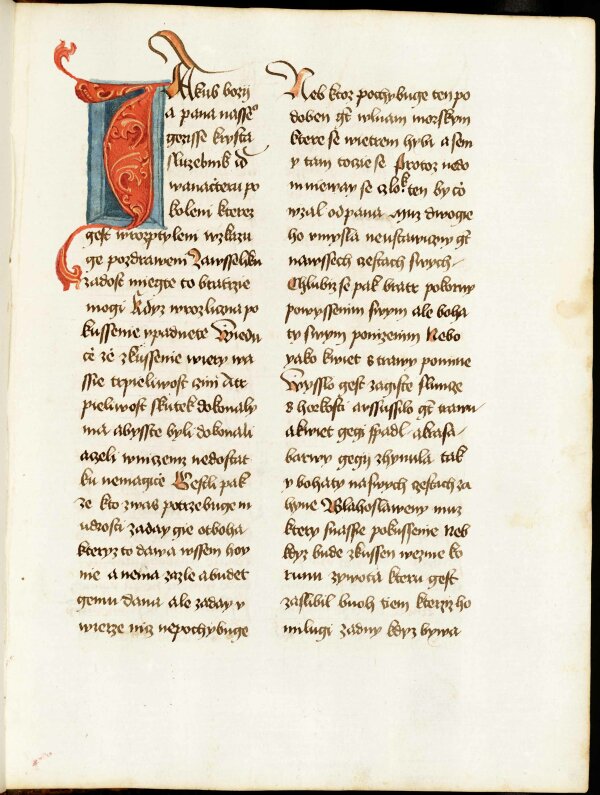 Jakub bozij
a pana nasseo
gezisse krysta
sluzebnik id
wanacteru po
koleni kterez
gest wrozptyleni wzkazu
ge pozdrawem Zawsseliku
zadost miegte to bratrzie
mogi Kdyz wrozlicna po
kussenie vpadnete Wiedu
ce ze zkussenie wiery wa
ssie trpieliwost czini A tr
pieliwost skutek dokonaly
ma abysste byli dokonali
a czeli wniczemz nedostat
ku nemagice Gestli pak
ze kto zwas potrzebuge m
udrosti zaday gie otboha
kteryz to dawa wssem hoy
nie a nema zazle a budet
gemu dana ale zaday v
wierze niz nepochybuge
Neb ktoz pochybuge ten po
doben gt wlnam morskym
ktere se wietrem hyba a sem
y tam tocie se Protoz nedo
mnieway se czlok ten by co
wzal od pana Muz dwoge
ho vmysla neustawiczny gt
nawssech czestach swych
Chlubiz se pak bratr pokorny
powyssenim swym ale boha
ty swym ponizenim Nebo
yako kwiet s trawy pomine
Wysslo gest zagiste slunce
s horkosti a vssussilo gt trawu
a kwiet gegi spadl a krasa
barwy gegij zhynula tak
y bohaty naswych czestach za
hyne Blahoslaweny muz
ktery snassie pokussenie neb
kdyz bude zkussen wezme ko
runu zywota kteru gest
zaslibil buoh tiem kterziz ho
milugi zadny kdyz bywa